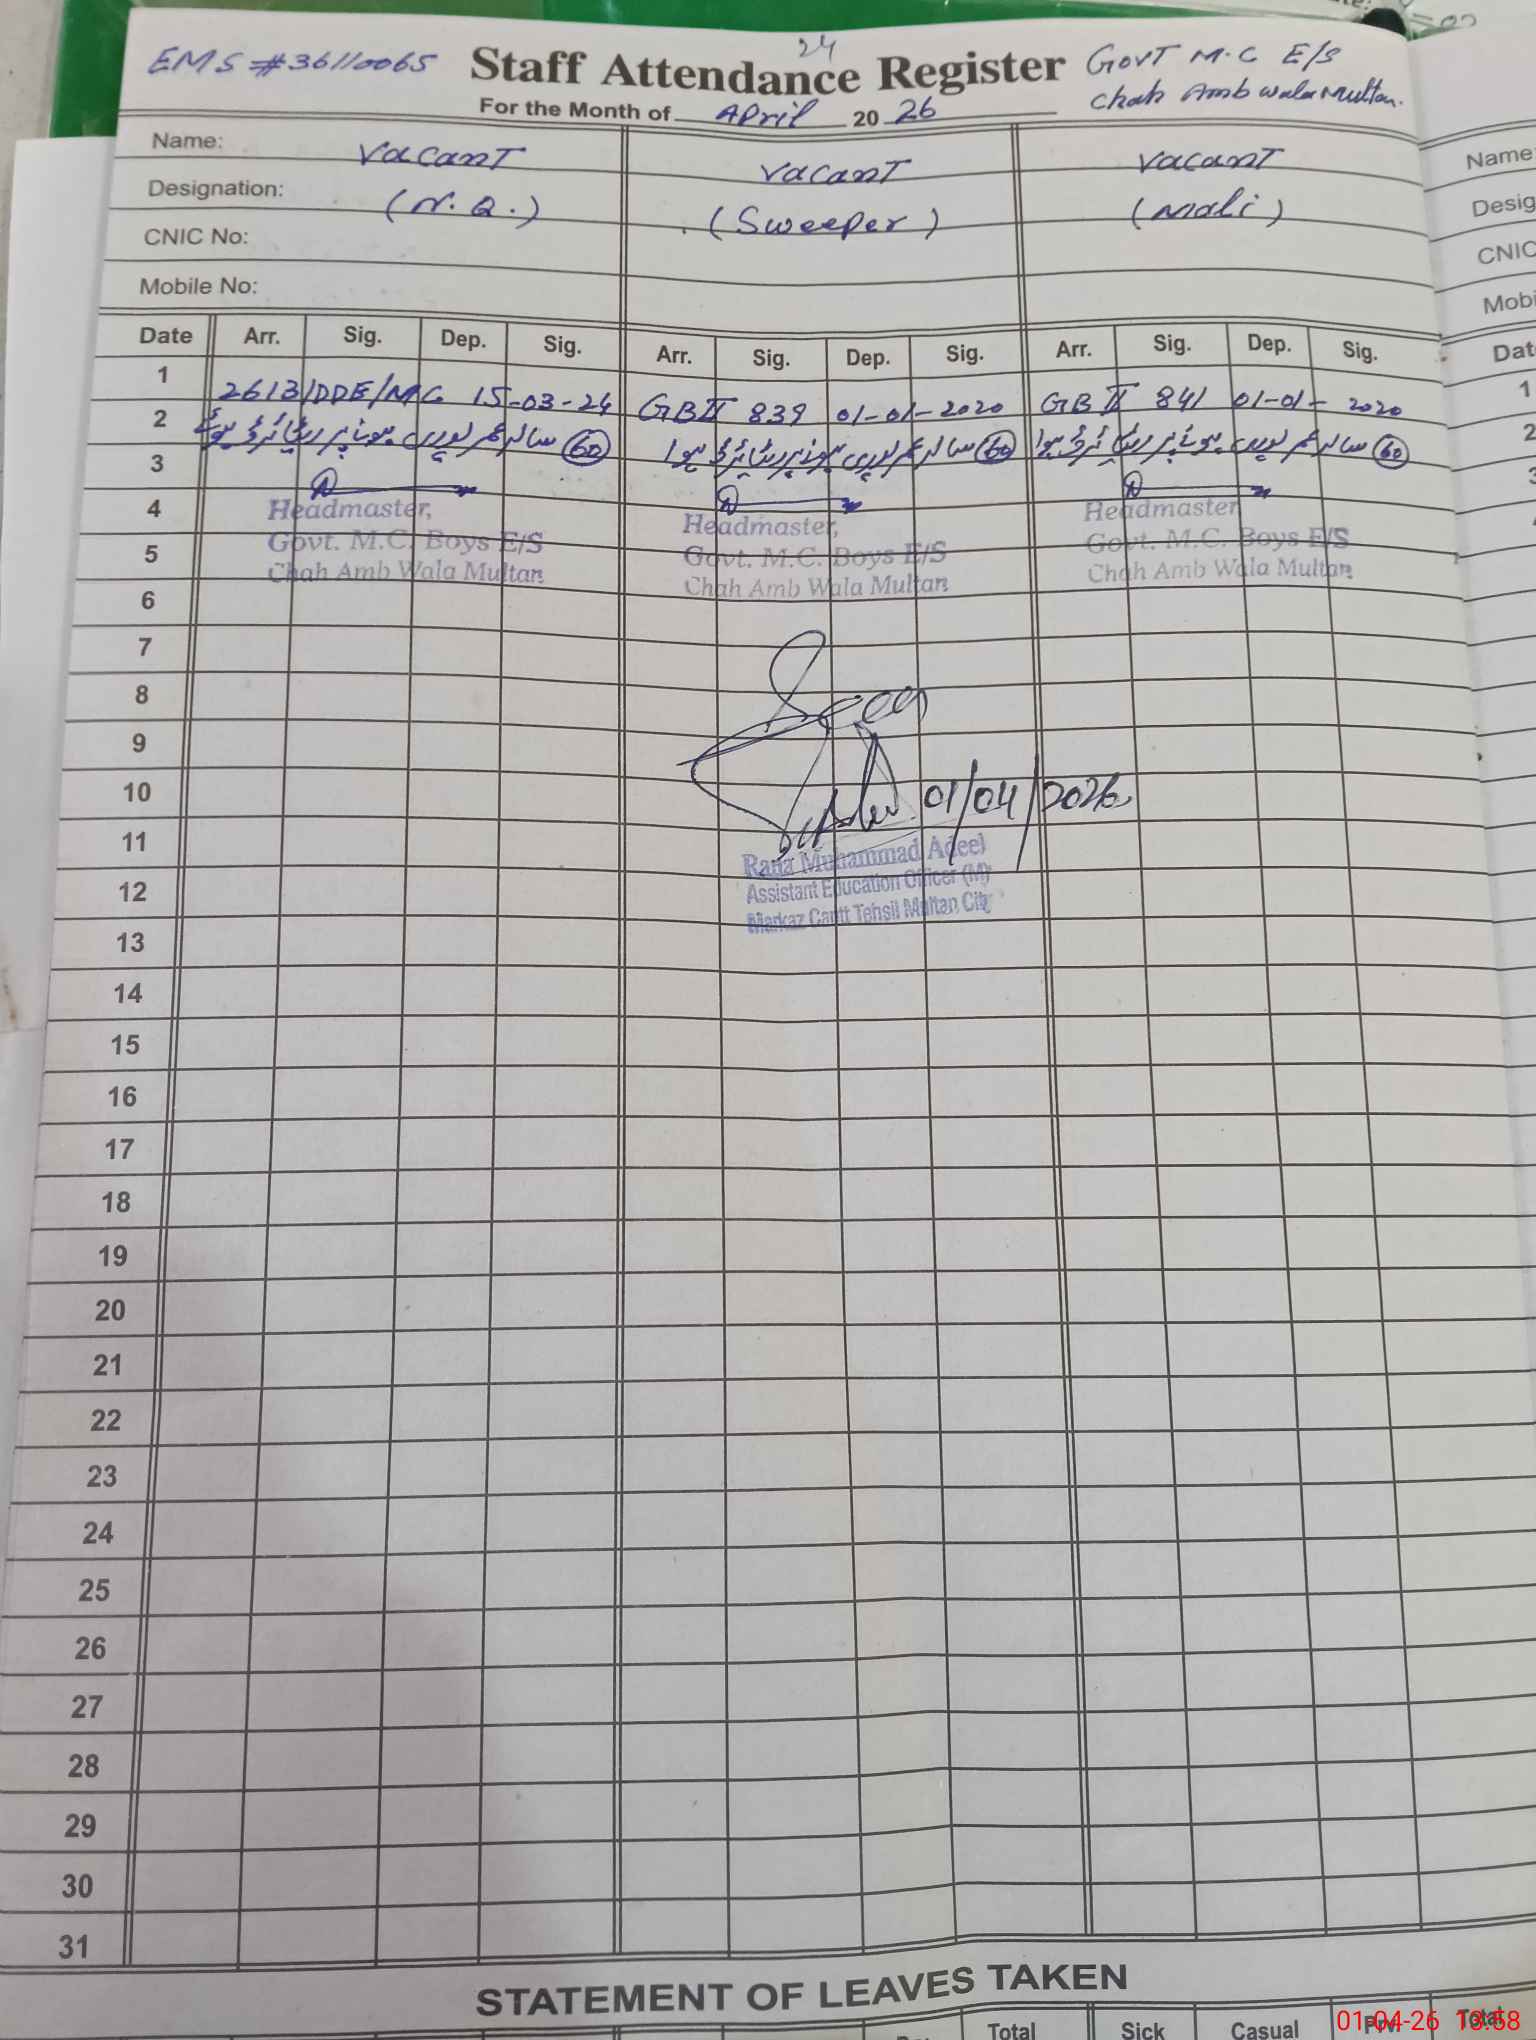 24
EMS #36110065 Staff Attendance Register Govt M.C E/S
Chah Amb wala Multan.
For the Month of April 2026
Name: Vacant Vacant Vacant Name:
Designation: (N.Q.) (Sweeper) (Mali) Desig
CNIC No: CNIC
Mobile No: Mobi
Date Arr. Sig. Dep. Sig. Arr. Sig. Dep. Sig. Arr. Sig. Dep. Sig. Dat
1 2613/DDE/MC 15-03-24 GB II 839 01-01-2020 GB II 841 01-01-2020 1
2 60 سالہ عمر پوری ہونے پر ریٹائرڈ ہوئے 60 سالہ عمر پوری ہونے پر ریٹائرڈ ہوا 60 سالہ عمر پوری ہونے پر ریٹائرڈ ہوا 2
3
4 Headmaster, Headmaster, Headmaster
5 Govt. M.C. Boys E/S Govt. M.C. Boys E/S Govt. M.C. Boys E/S
Chah Amb Wala Multan Chah Amb Wala Multan Chah Amb Wala Multan
6
7
8 Seen
9
10 01/04/2026
11 Rana Muhammad Adeel
12 Assistant Education Officer (M)
Markaz Cantt Tehsil Multan City
13
14
15
16
17
18
19
20
21
22
23
24
25
26
27
28
29
30
31
STATEMENT OF LEAVES TAKEN
Total Sick Casual Prvi Total
01-04-26 13:58